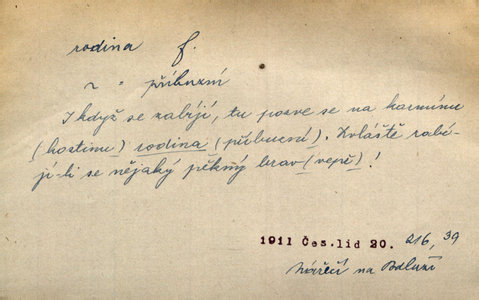 rodina f.
~ = příbuzní
I když se zabíjí, tu pozve se na karmínu
(hostinu) rodina (příbuzná). Zvláště zabí-
jí-li se nějaký pěkný brav (vepř)!
1911 Čes.lid 20. 216, 39
Nářečí na Podluží